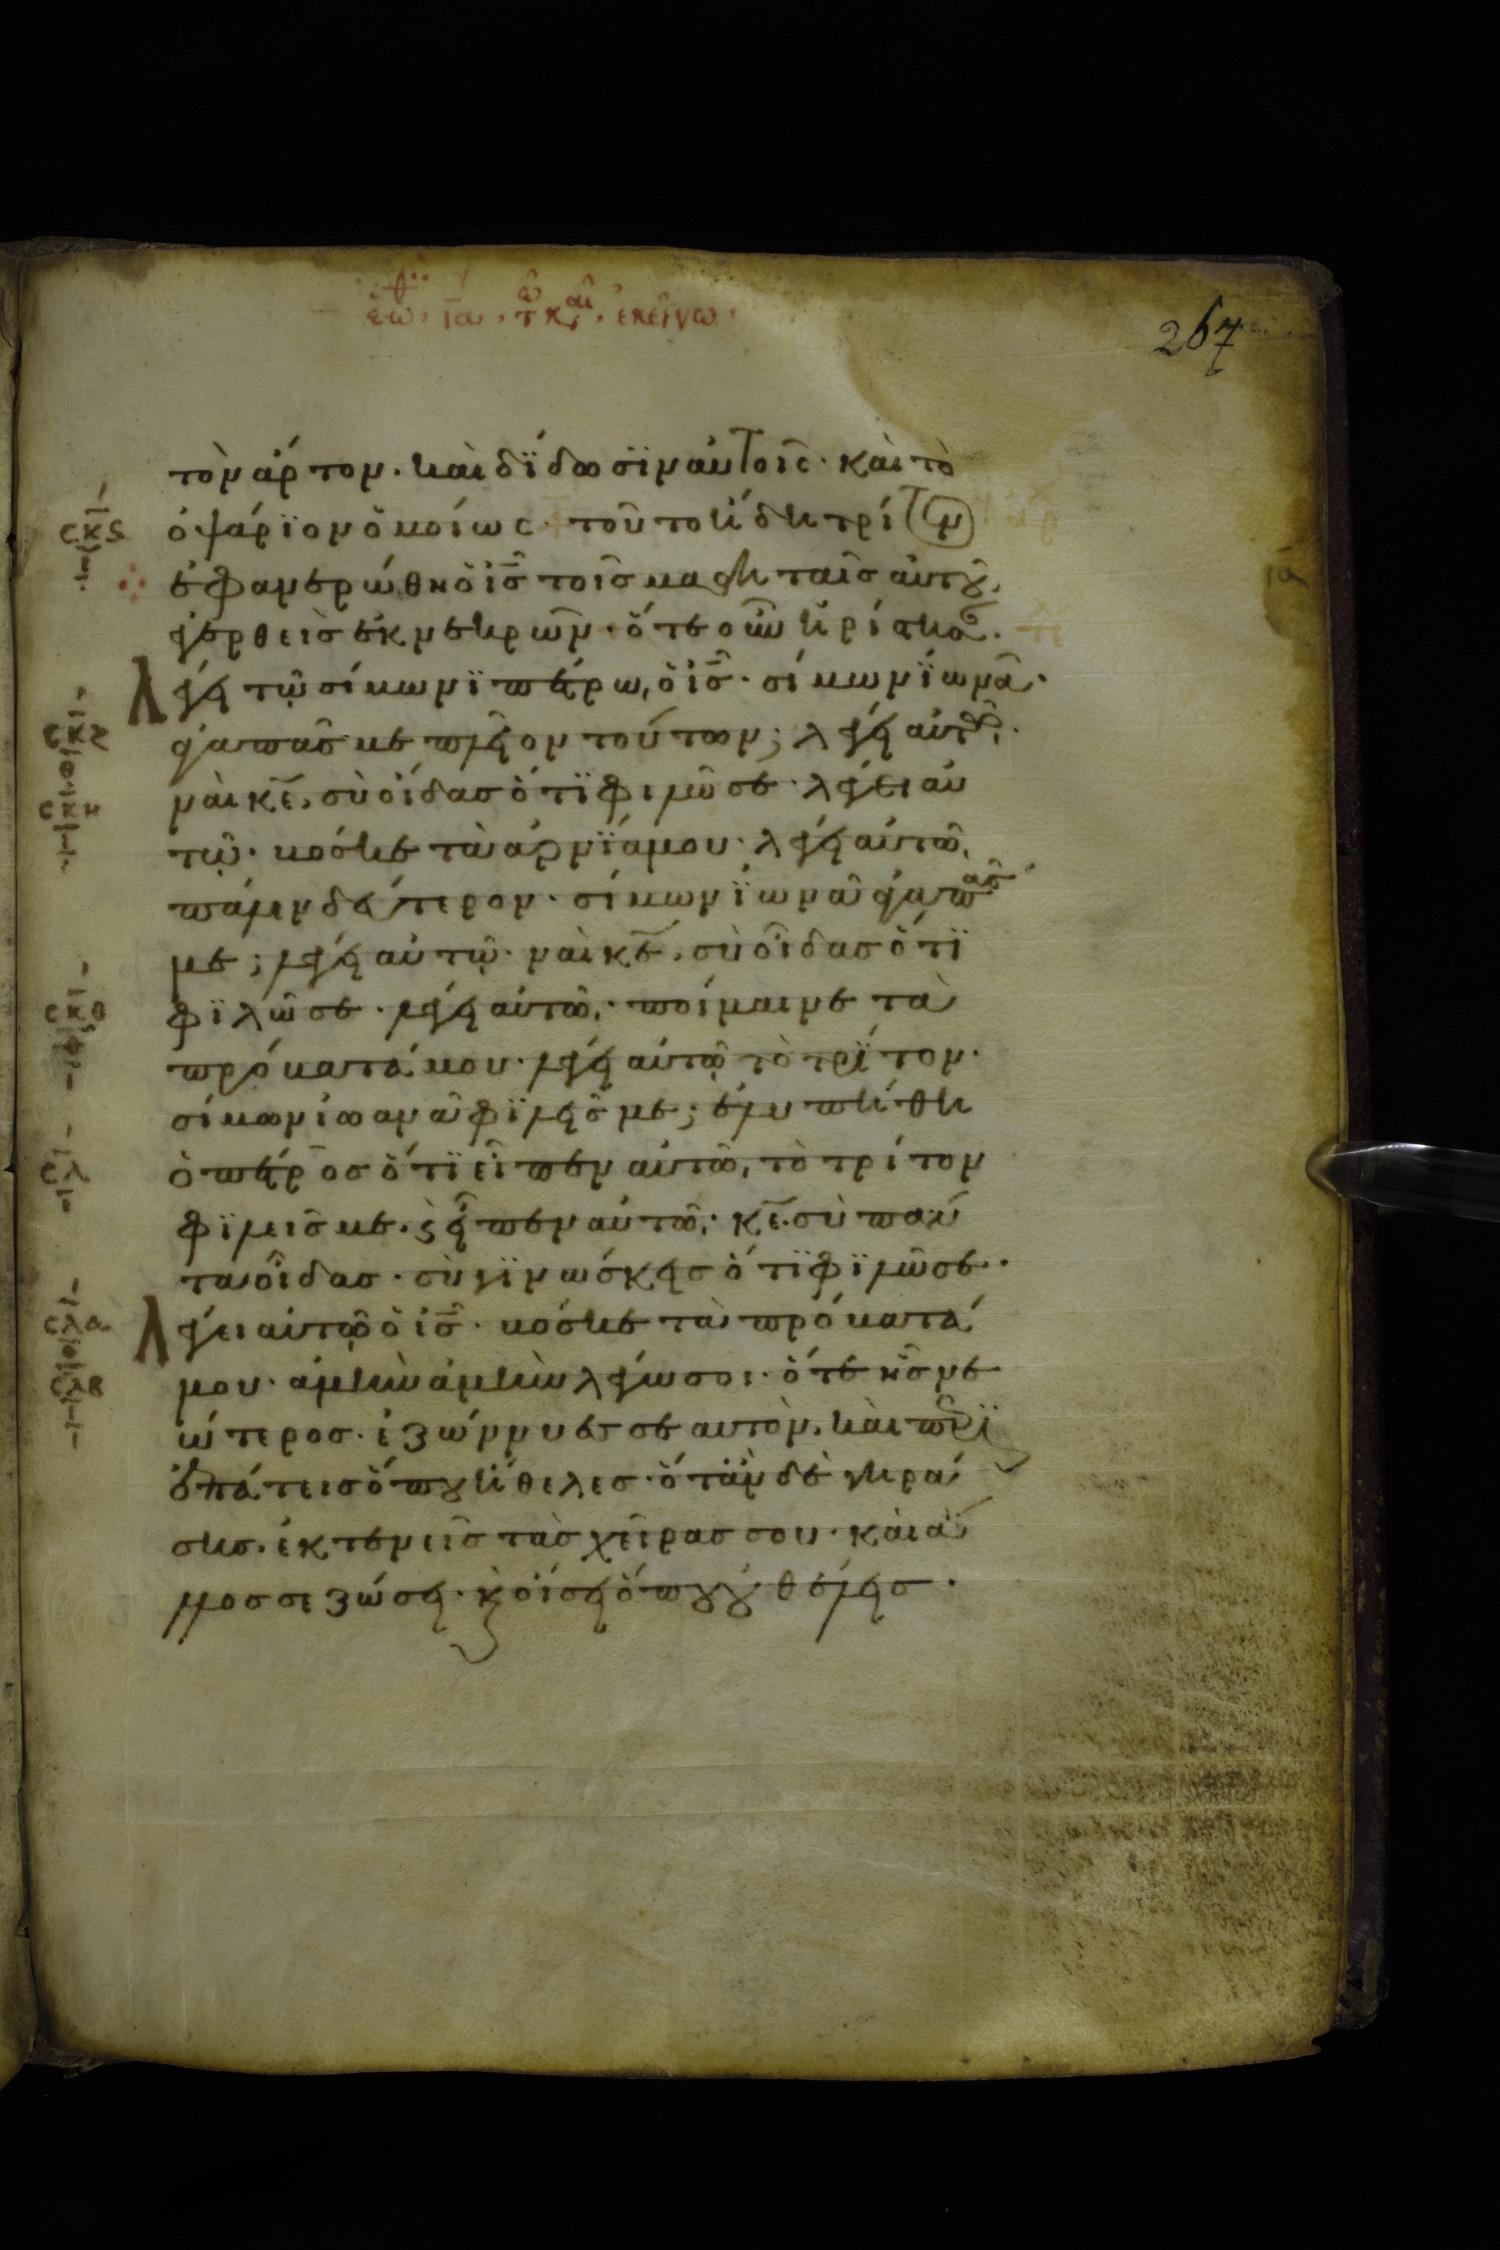 ἑωθ · ια · τω καιρ · ἐκείνω ·
267
τὸν ἄρτον · καὶ δΐδωσϊν αὐτοῖς · καὶ τὸ
ςκς ὀψάρϊον ὁμοίως · τοῦτο ἤδη τρίτον
ἐφανερώθη ὁ ἰς̅ τοῖς μαθηταῖς αὐτοῦ,
ἐγερθεὶς ἐκ νεκρῶν · ὅτε οὖν ἠρίστησ ·
Λέγει τῷ σίμωνϊ πέτρω, ὁ ἰς̅ · σίμων ϊωνᾶ ·
ςκζ ἀγαπᾶς με πλεῖον τούτων ; λέγει αὐτῶ ·
ναὶ κε̅, σὺ οἶδας ὅτϊ φιλῶ σε · λέγει αὐ
ςκη τῷ · βόσκε τὰ ἀρνΐα μου · λέγει αὐτῶ,
πάλιν δεύτερον · σίμων ϊωνᾶ ἀγαπᾶς
με ; λέγει αὐτῷ · ναὶ κε̅, σὺ οἶδας ὅτϊ
ςκθ φϊλῶ σε · λέγει αὐτῶ, · ποίμαινε τὰ
πρόβατά μου · λέγει αὐτῷ τὸ τρΐτον ·
σίμων ἰωανᾶ φϊλεῖς με ; ἐλυπήθη
ςλ ὁ πέτρος ὅτϊ εἶπεν αὐτῶ, τὸ τρίτον
φϊλεῖς με · ϗ εἶπεν αὐτῶ, · κε̅ · σὺ πάν
τα οἶδας · σὺ γϊνώσκεις ὅτϊ φϊλῶ σε ·
ςλα Λέγει αὐτῷ ὁ ἰς̅ · βόσκε τὰ πρόβατά
ςλβ μου · ἀμὴν ἀμὴν λέγω σοι · ὅτε ἦς νε
ώτερος · ἐζώννυες σεαυτὸν, καὶ περϊ
επάτεις ὅπου ἤθελες · ὅταν δὲ γηρά
σης · ἐκτενεῖς τὰς χεῖρας σου · καὶ ἄ
λλος σε ζώσει · ϗ οἴσει ὅπου οὐ θέλεις ·